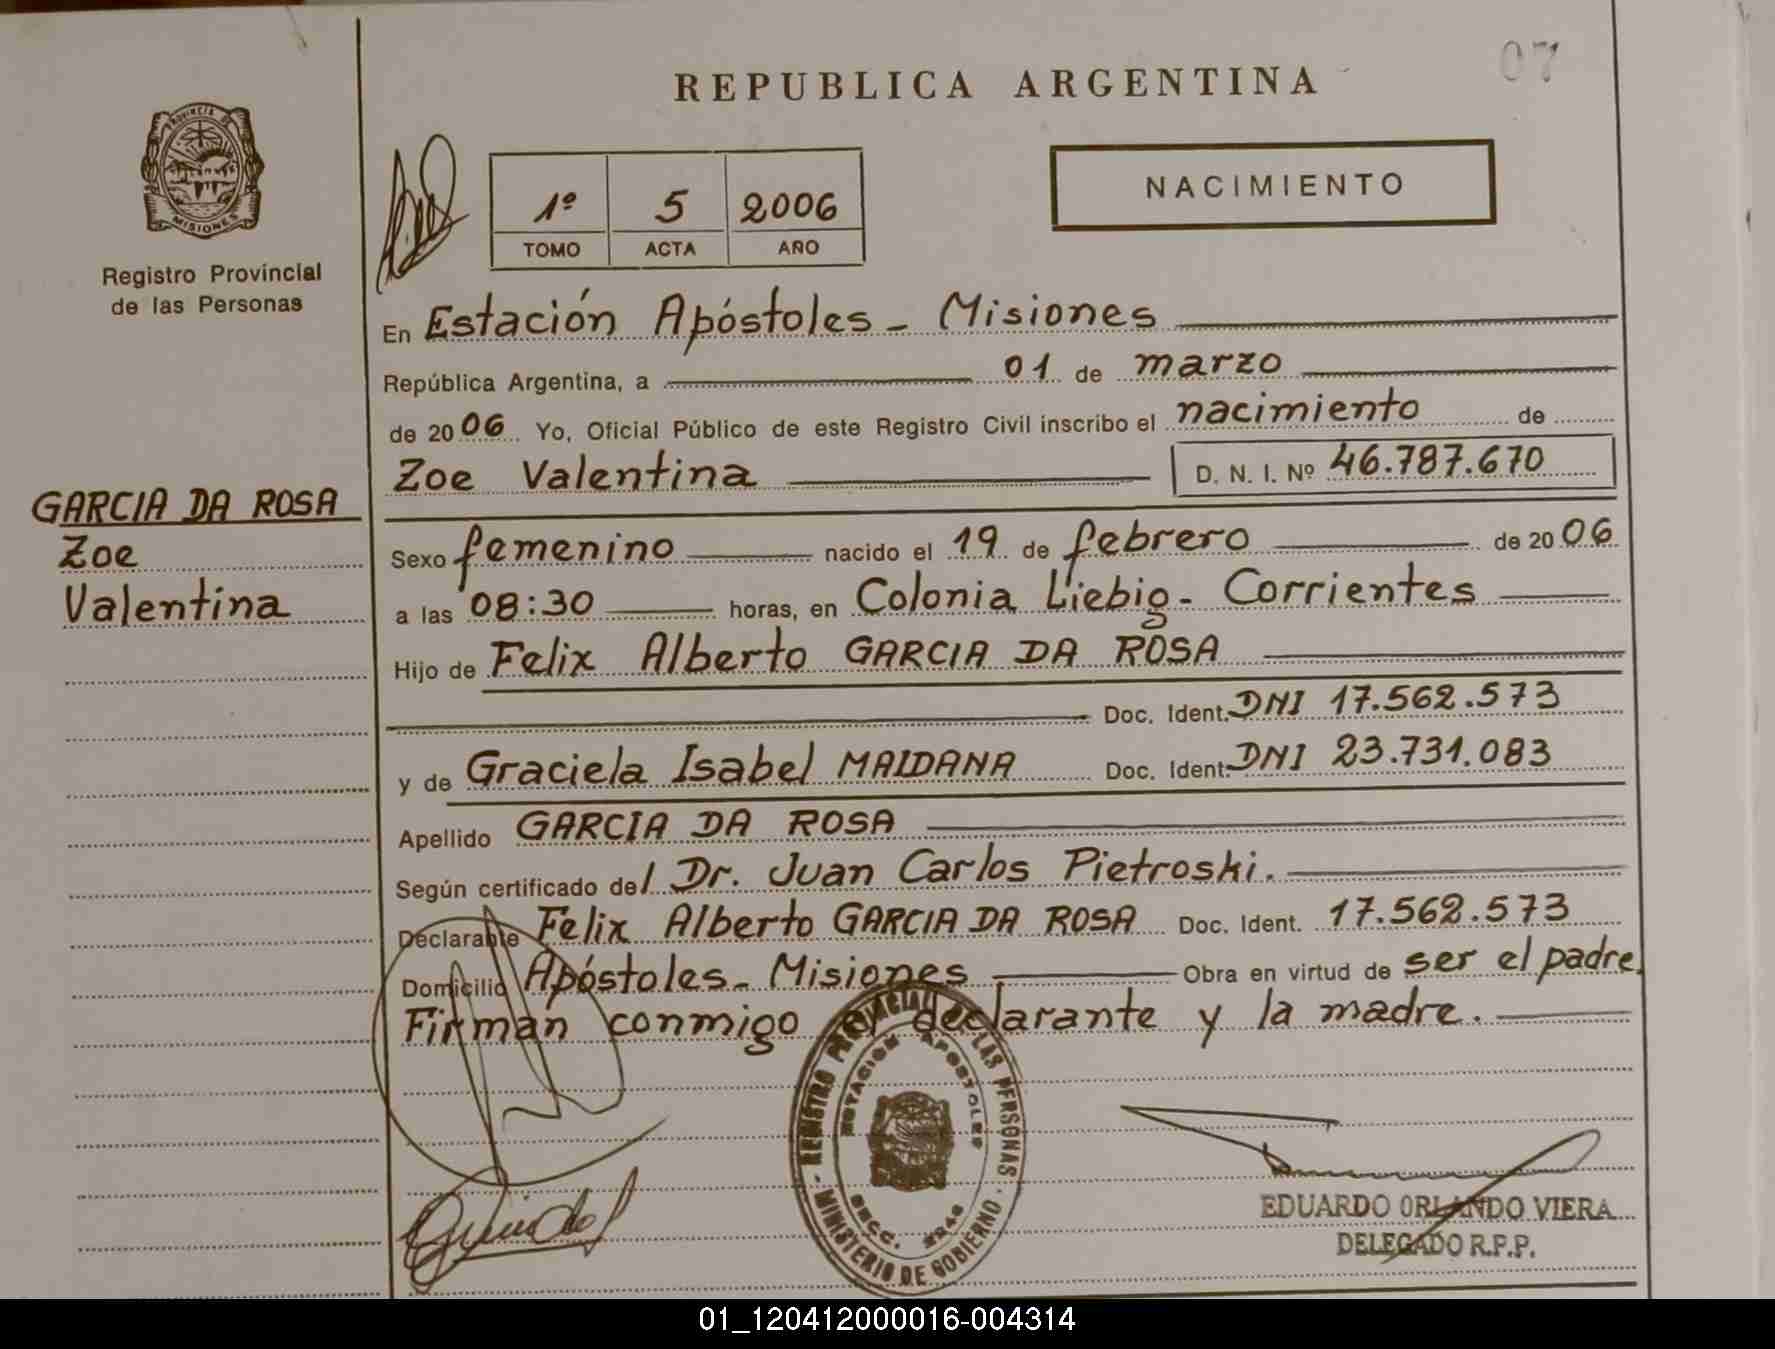 REPUBLICA ARGENTINA
07
PROVINCIA DE
MISIONES
Registro Provincial
de las Personas
1º 5 2006
TOMO ACTA AÑO
NACIMIENTO
En Estación Apóstoles - Misiones
República Argentina, a 01 de marzo
de 2006 Yo, Oficial Público de este Registro Civil inscribo el nacimiento de
Zoe Valentina D. N. I. Nº 46.787.670
GARCIA DA ROSA
Zoe
Valentina
Sexo femenino nacido el 19 de febrero de 2006
a las 08:30 horas, en Colonia Liebig - Corrientes
Hijo de Felix Alberto GARCIA DA ROSA
Doc. Ident. DNI 17.562.573
y de Graciela Isabel MAIDANA Doc. Ident. DNI 23.731.083
Apellido GARCIA DA ROSA
Según certificado del Dr. Juan Carlos Pietroski.
Declarante Felix Alberto GARCIA DA ROSA Doc. Ident. 17.562.573
Domicilio Apóstoles - Misiones Obra en virtud de ser el padre.
Firman conmigo el declarante y la madre.
REGISTRO PROVINCIAL DE LAS PERSONAS
ESTACION APOSTOLES
MINISTERIO DE GOBIERNO
EDUARDO ORLANDO VIERA
DELEGADO R.P.P.
01_120412000016-004314